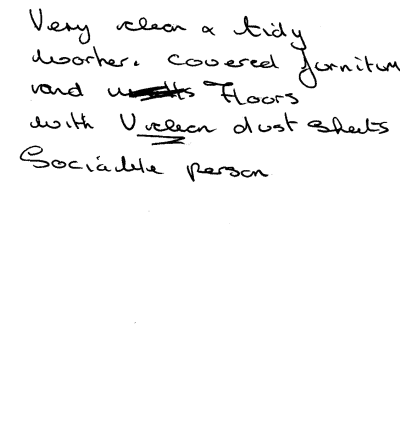 Very clean & tidy
worker. covered furnitur
and Floors
with V clean dust sheets
Sociable person